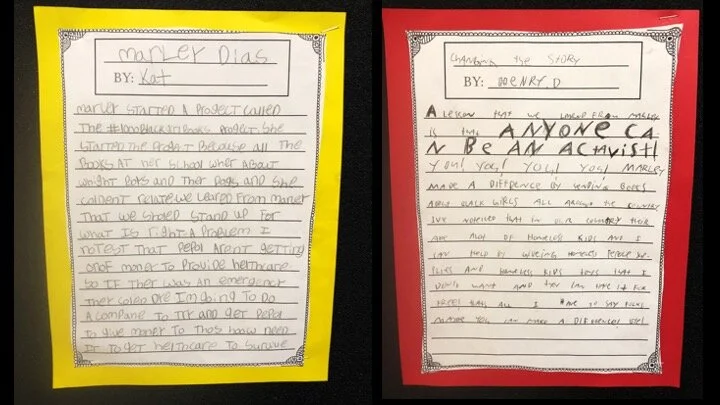 Marley Dias
BY: Kat
marley STarTeD A Project Called
The #1000BlackGirlBooks Project. She
STarTeD The Project Because all The
Books AT her School wher About
whight Boys and Ther Dogs and She
coldent relate we leared From marley
That we Sholed STand up For
what Is right A Problem I
noTesT That Pepol Arent geTTing
onof money To Provide helthcare
So IF Ther was An emergency
They coled Die I'm Going To Do
A compane To Try and get Pepol
To give money To Thos hoow need
IT To get helthcare To Survive
CHANGING the STORY
BY: HENRY.D
A lesson that we larned FROM MARLEY
is that ANYONE CA
N BE AN ACTIVIST!
YOU! YOU! YOU! YOU! MARLEY
MADE A DIFFRENCE BY sending BOOKS
ABOUT BLACK GIRLS ALL AROUND the COUNTRY
IVE NOTICED THAT IN OUR COUNTRY THEIR
ARE ALOT OF HOMELESS KIDS AND I
CAN HELP BY GIVEING HOMELESS PEOPLE SU-
PLIES AND HOMELESS KIDS TOYS THAT I
DON'T WANT AND THEY CAN HAVE IT FOR
FREE! THATS ALL I HAVE TO SAY FOLKS
MAYBE YOU CAN MAKE A DIFERENCE!